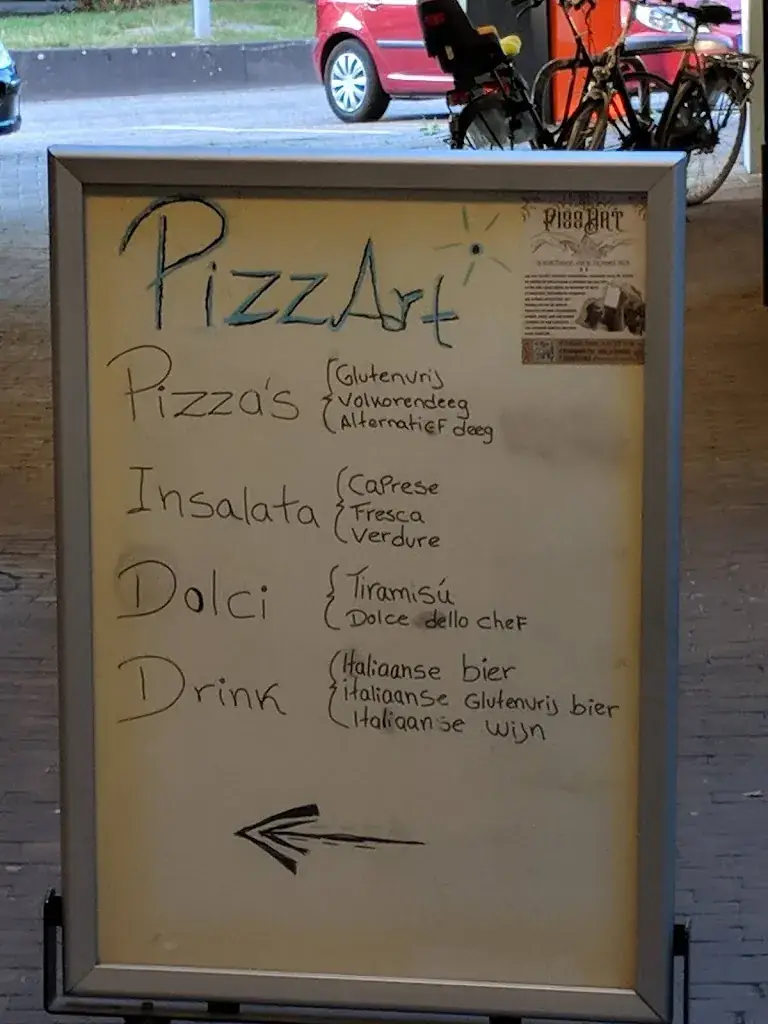 PizzArt
PIZZART
Pizza's
Glutenvrij
Volkorendeeg
AlternatiEF deeg
Insalata
Caprese
Fresca
Verdure
Dolci
Tiramisú
Dolce dello cheF
Drink
Italiaanse bier
italiaanse Glutenvrij bier
Italiaanse wijn